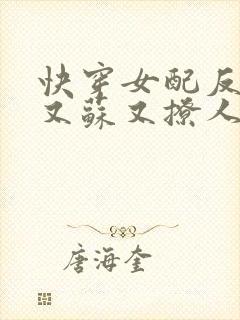 快穿女配反
又蘇又撩人
唐海奎